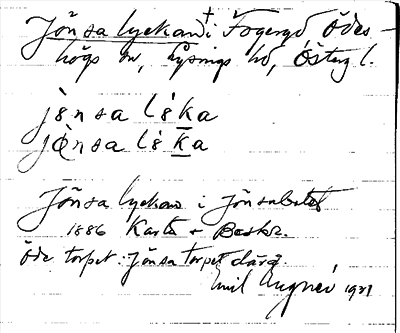 Jönsa lyckan † i Fogergd Ödes-
högs sn, Lysings hd, Österg l.
jònsa lỳka
jònsa lỳka
Jönsa lyckan i Jönsabotet
1886 Karta + Beskr.
öde torpet: Jönsa torpet därå.
Emil 1921